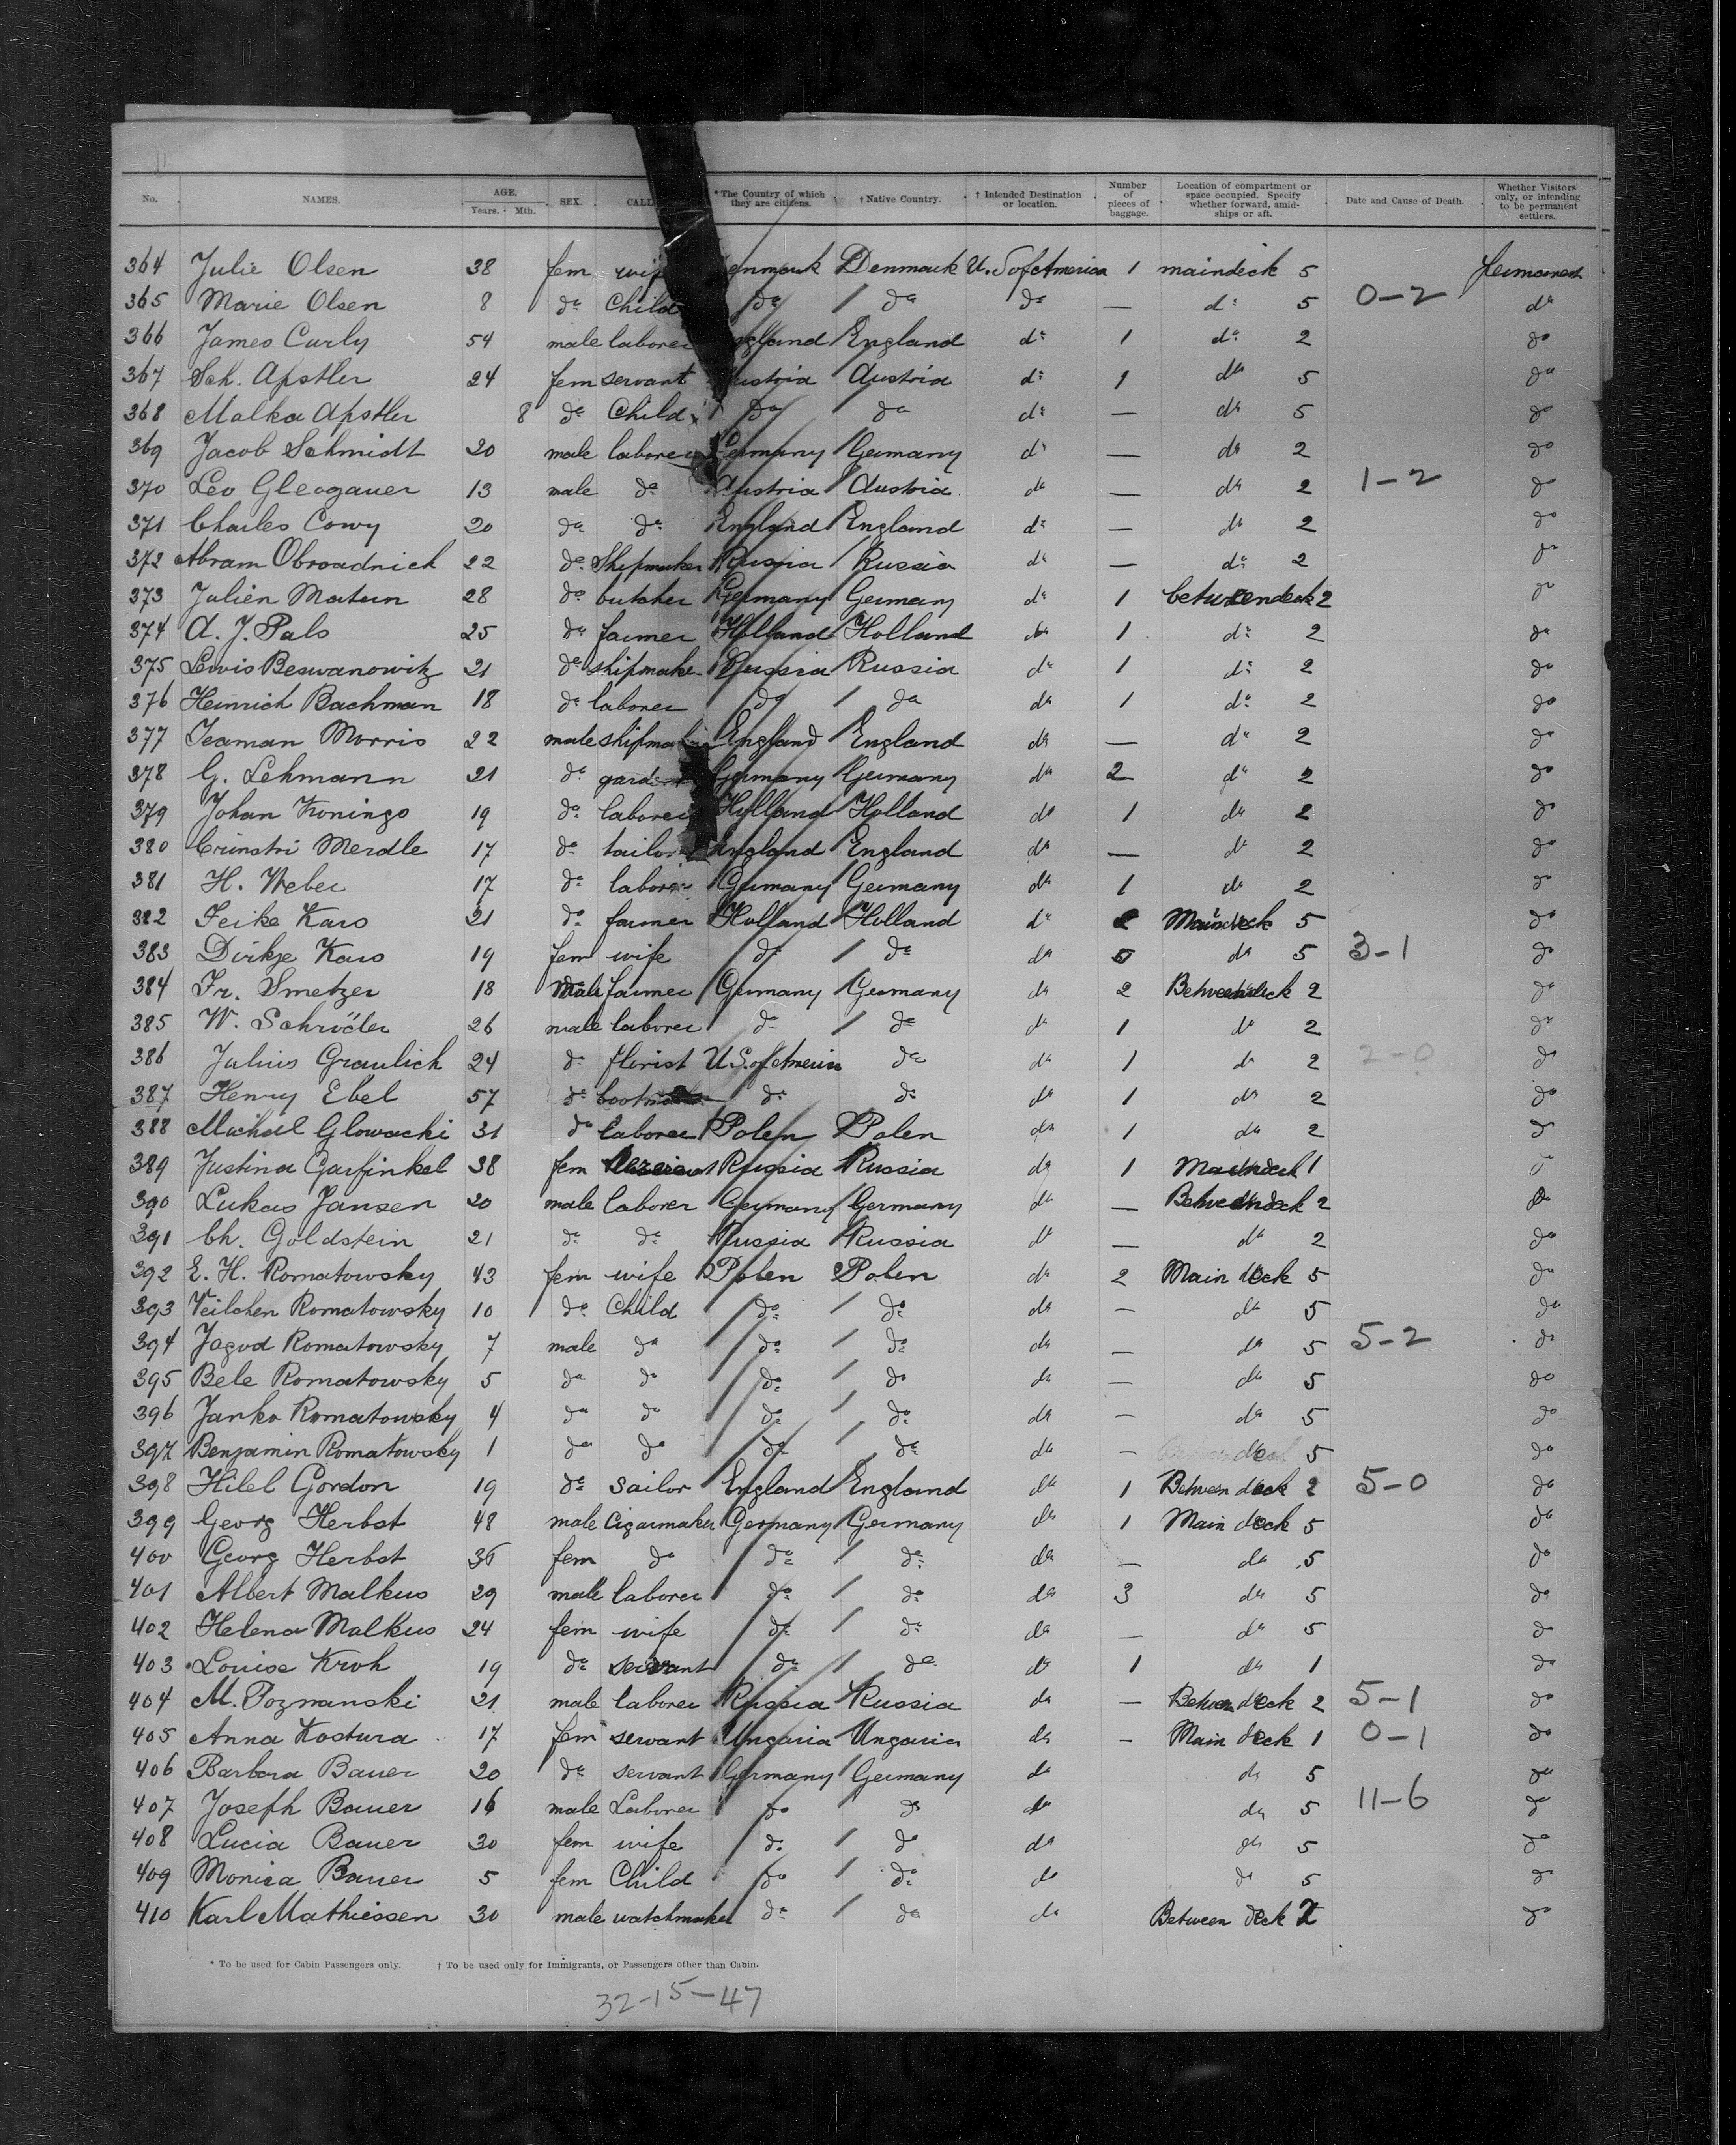 No. NAMES. AGE. Years. Mth. SEX. CALL *The Country of which they are citizens. †Native Country. †Intended Destination or location. Number of pieces of baggage. Location of compartment or space occupied. Specify whether forward, amidships or aft. Date and Cause of Death. Whether Visitors only, or intending to be permanent settlers.
364 Julie Olsen 38 fem wife Denmark Denmark U. S of America 1 maindeck 5
365 Marie Olsen 8 do Child do do do — do 5 0-2 do
366 James Curly 54 male laborer England England do 1 do 2 do
367 Sch. Apstler 24 fem servant Austria Austria do 1 do 5 do
368 Malka Apstler 8 do Child do do do — do 5 do
369 Jacob Schmidt 20 male laborer Germany Germany do — do 2 do
370 Leo Gleogauer 13 male do Austria Austria do — do 2 1-2 do
371 Charles Cowy 20 do do England England do — do 2 do
372 Abram Obroadnick 22 do Shipmaker Russia Russia do — do 2 do
373 Julien Matern 28 do butcher Germany Germany do 1 betweendeck 2 do
374 A. J. Pals 25 do farmer Holland Holland do 1 do 2 do
375 Lewis Beswanowitz 21 do shipmaker Russia Russia do 1 do 2 do
376 Heinrich Bachman 18 do laborer do do do 1 do 2 do
377 Seaman Morris 22 male shipmaker England England do — do 2 do
378 G. Lehmann 21 do gard Germany Germany do 2 do 2 do
379 Johan Konings 19 do laborer Holland Holland do 1 do 2 do
380 Crinstri Merdle 17 do tailor England England do — do 2 do
381 H. Weber 17 do laborer Germany Germany do 1 do 2 do
382 Feike Kaas 21 do farmer Holland Holland do 2 Maindeck 5 do
383 Dirkje Kaas 19 fem wife do do do do 5 3-1 do
384 Fr. Smetzer 18 male farmer Germany Germany do 2 Betweendeck 2 do
385 W. Schröder 26 male laborer do do do 1 do 2 do
386 Julius Graulich 24 do florist U. S. of America do do 1 do 2 2-0 do
387 Henry Ebel 57 do do do do 1 do 2 do
388 Michael Glowacki 31 do laborer Polen Polen do 1 do 2 do
389 Justina Garfinkel 38 fem servant Russia Russia do 1 Maindeck 1 do
390 Lukas Jansen 20 male laborer Germany Germany do — Betweendeck 2 do
391 Ch. Goldstein 21 do do Russia Russia do — do 2 do
392 E. H. Romatowsky 43 fem wife Polen Polen do 2 Main deck 5 do
393 Veilchen Romatowsky 10 do Child do do do — do 5 do
394 Jagod Romatowsky 7 male do do do do — do 5 5-2 do
395 Bele Romatowsky 5 do do do do do — do 5 do
396 Janko Romatowsky 4 do do do do do — do 5 do
397 Benjamin Romatowsky 1 do do do do do — 5 do
398 Hilel Gordon 19 do sailor England England do 1 Between deck 2 5-0 do
399 Georg Herbst 48 male Cigarmaker Germany Germany do 1 Main deck 5 do
400 Georg Herbst 36 fem do do do do — do 5 do
401 Albert Malkus 29 male laborer do do do 3 do 5 do
402 Helena Malkus 24 fem wife do do do — do 5 do
403 Louise Kroh 19 do servant do do do 1 do 1 do
404 M. Poznanski 21 male laborer Russia Russia do — Between deck 2 5-1 do
405 Anna Kostura 17 fem servant Ungaria Ungaria do — Main deck 1 0-1 do
406 Barbara Bauer 20 do servant Germany Germany do do 5 do
407 Joseph Bauer 16 male Laborer do do do do 5 11-6 do
408 Lucia Bauer 30 fem wife do do do do 5 do
409 Monica Bauer 5 fem Child do do do do 5 do
410 Karl Mathiessen 30 male watchmaker do do do Between deck 2 do
* To be used for Cabin Passengers only. † To be used only for Immigrants, or Passengers other than Cabin.
32-15-47